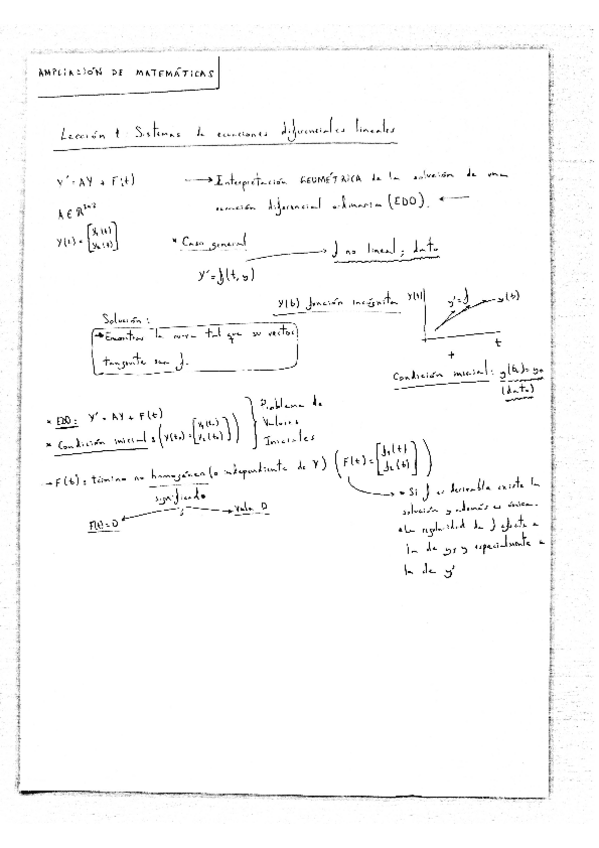 AMPLIACIÓN DE MATEMÁTICAS
Lección 1 Sistemas de ecuaciones diferenciales lineales
Y' = AY + F(t) → Interpretación GEOMÉTRICA de la solución de una
A ∈ R²ˣ² ecuación diferencial ordinaria (EDO). ←
Y(t) = [y₁(t) y₂(t)]
* Caso general → f no lineal; dato
Y' = f(t, y)
Y(t) función incógnita
Y(t) y'=f y(t)
t
Solución:
→ Encontrar la curva tal que su vector
tangente sea f.
Condición inicial: y(t₀) = y₀
(dato)
* EDO: Y' = AY + F(t)
* Condición inicial: (Y(t₀) = [y₁(t₀) y₂(t₀)])
Problema de
Valores
Iniciales
→ F(t): término no homogéneo (o independiente de Y) (F(t) = [f₁(t) f₂(t)])
significado
F(t) = 0 Vale 0
* Si f es derivable existe la
solución y además es única.
* La regularidad de f afecta a
la de y, y especialmente a
la de y'